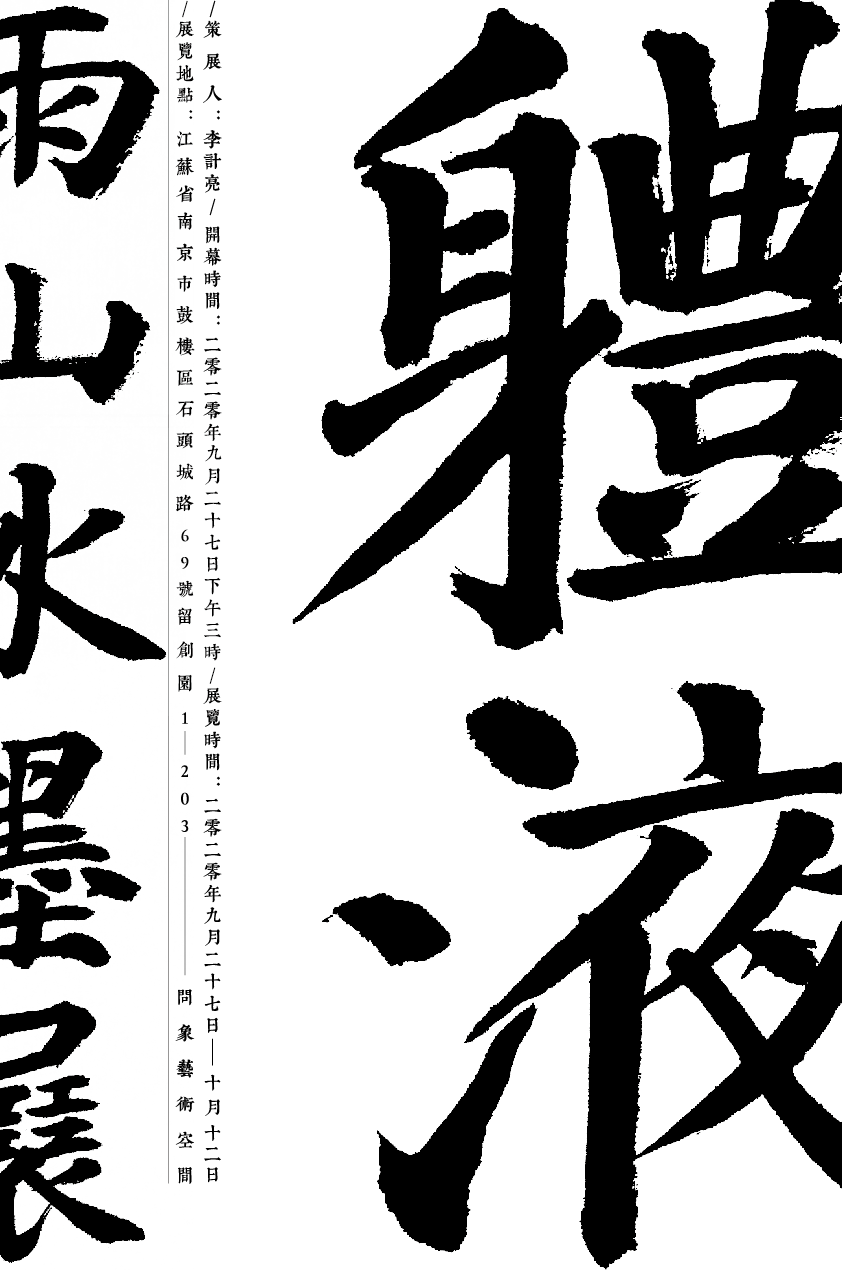 軆液
/策展人：李計亮/開幕時間：二零二零年九月二十七日下午三時/展覽時間：二零二零年九月二十七日—十月十二日
/展覽地點：江蘇省南京市鼓樓區石頭城路69號留創園1—203——問象藝術空間
雨山水墨展